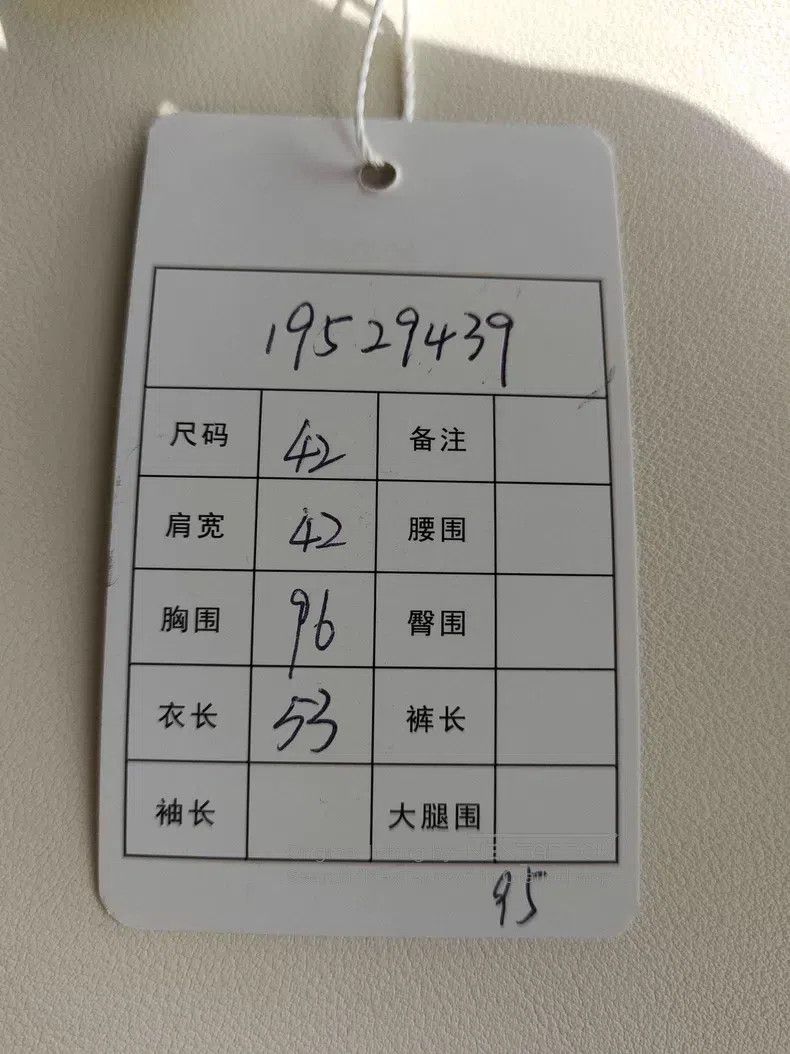 19529439
尺码 42 备注
肩宽 42 腰围
胸围 96 臀围
衣长 53 裤长
袖长 大腿围
95